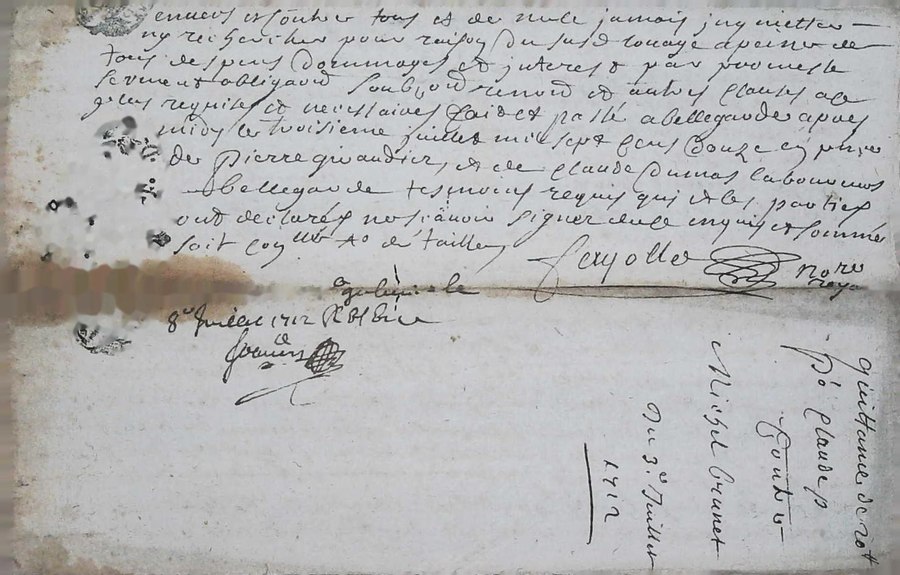 envers et contre tous et de ne le jamais inquietter
ny rechercher pour raison du susd louage a peine de
tous despens dommages et interest par promesse
serment obligaon soubzon renon et autres clauses a ce
plus requises et necessaires fait et passé a bellegarde apres
midy le troisieme juillet mil sept cens douze en pnce
de Pierre giraudier, et de claude dumas laboureurs
de bellegarde tesmoins requis qui et les parties
ont declarés ne scavoir signer de ce enquis et sommé
soit coñllé &
fayolle no.re
roya
le
8e Juillet 1712 R
quittance de 20lt
Po claude
Michel brunet
du 3e Juillet
1712